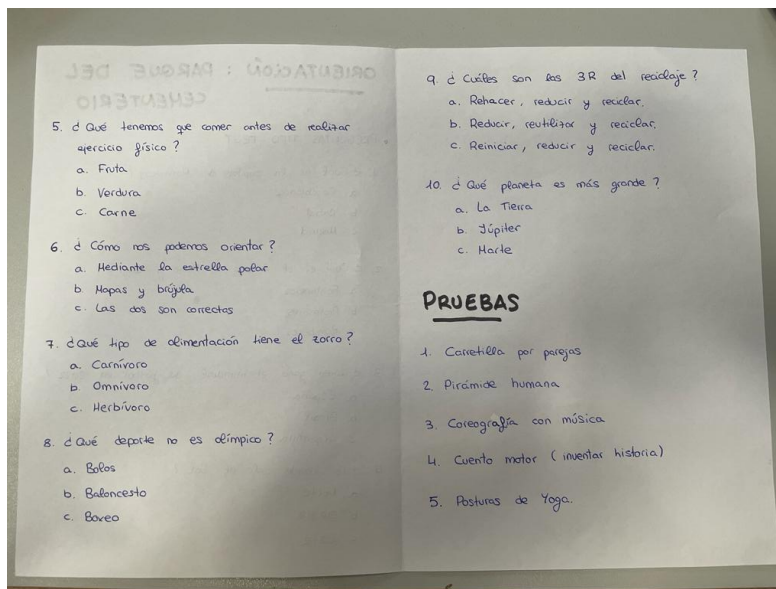 5. ¿ Qué tenemos que comer antes de realizar
ejercicio físico ?
a. Fruta
b. Verdura
c. Carne
6. ¿ Cómo nos podemos orientar ?
a. Mediante la estrella polar
b Mapas y brújula
c. Las dos son correctas
7. ¿Qué tipo de alimentación tiene el zorro ?
a. Carnívoro
b. Omnívoro
c. Herbívoro
8. ¿ Qué deporte no es olímpico ?
a. Bolos
b. Baloncesto
c. Boxeo
9. ¿ Cuáles son las 3R del reciclaje ?
a. Rehacer, reducir y reciclar.
b. Reducir, reutilizar y reciclar.
c. Reiniciar, reducir y reciclar.
10. ¿ Qué planeta es más grande ?
a. La Tierra
b. Júpiter
c. Marte
PRUEBAS
1. Carretilla por parejas
2. Pirámide humana
3. Coreografía con música
4. Cuento motor ( inventar historia)
5. Posturas de Yoga.
ORIENTACIÓN : PARQUE DEL
CEMENTERIO